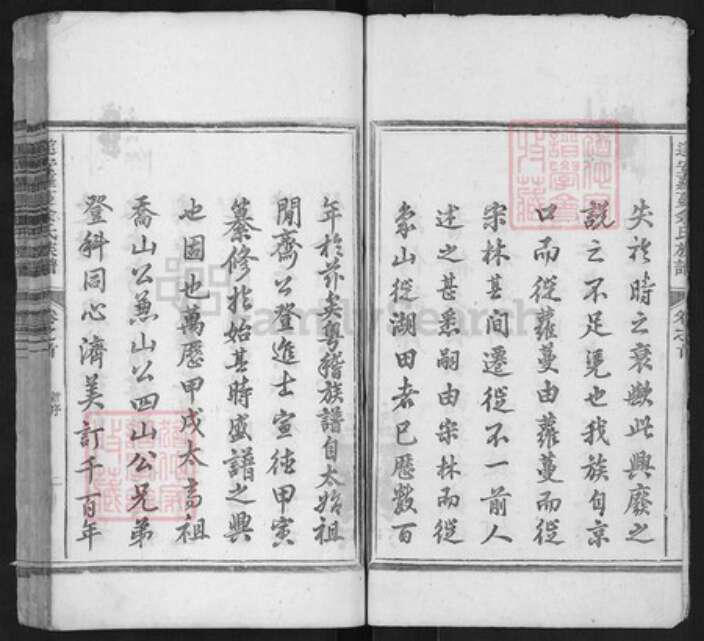 失於時之衰歟此興廢之
說之不足凴也我族自京
口而從蘿蔓由蘿蔓而從
宋林甚間遷徙不一前人
述之甚悉嗣由宋林而從
象山從湖田者已歷數百
年於茲矣粵稽族譜自太始祖
閒齋公登進士宣德甲寅
纂修於始其時盛譜之興
也固也萬歷甲戌太高祖
喬山公兼山公四山公兄弟
登科同心濟美訂千百年
familysearch